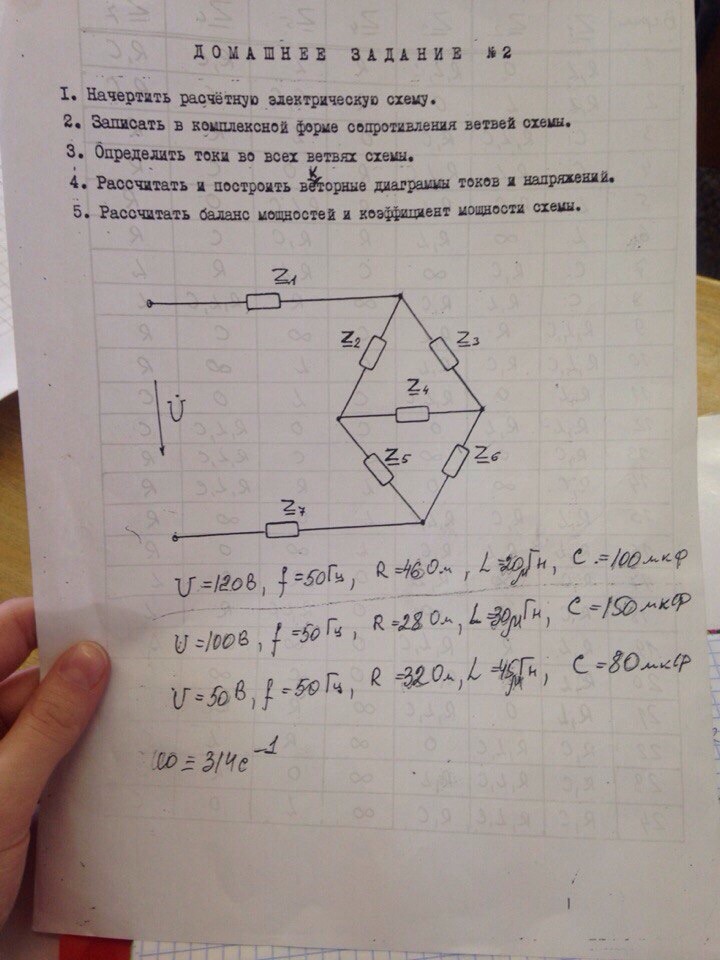 ДОМАШНЕЕ ЗАДАНИЕ №2
1. Начертить расчётную электрическую схему.
2. Записать в комплексной форме сопротивления ветвей схемы.
3. Определить токи во всех ветвях схемы.
4. Рассчитать и построить векторные диаграммы токов и напряжений.
5. Рассчитать баланс мощностей и коэффициент мощности схемы.
Z1
Z2
Z3
Z4
U̇
Z5
Z6
Z7
U=120В, f=50Гц, R=46Ом, L=20мГн, C=100мкФ
U=100В, f=50Гц, R=28Ом, L=30мГн, C=150мкФ
U=50В, f=50Гц, R=32Ом, L=45мГн, C=80мкФ
= 314с⁻¹